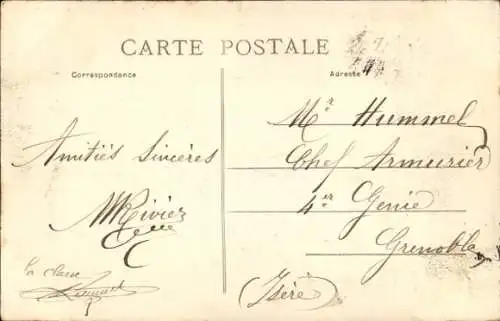 CARTE POSTALE
Correspondance
Adresse
Amitiés Sincères
Mr Hummel
Chef Armurier
4er Génie
Grenoble
(Isère)
la classe